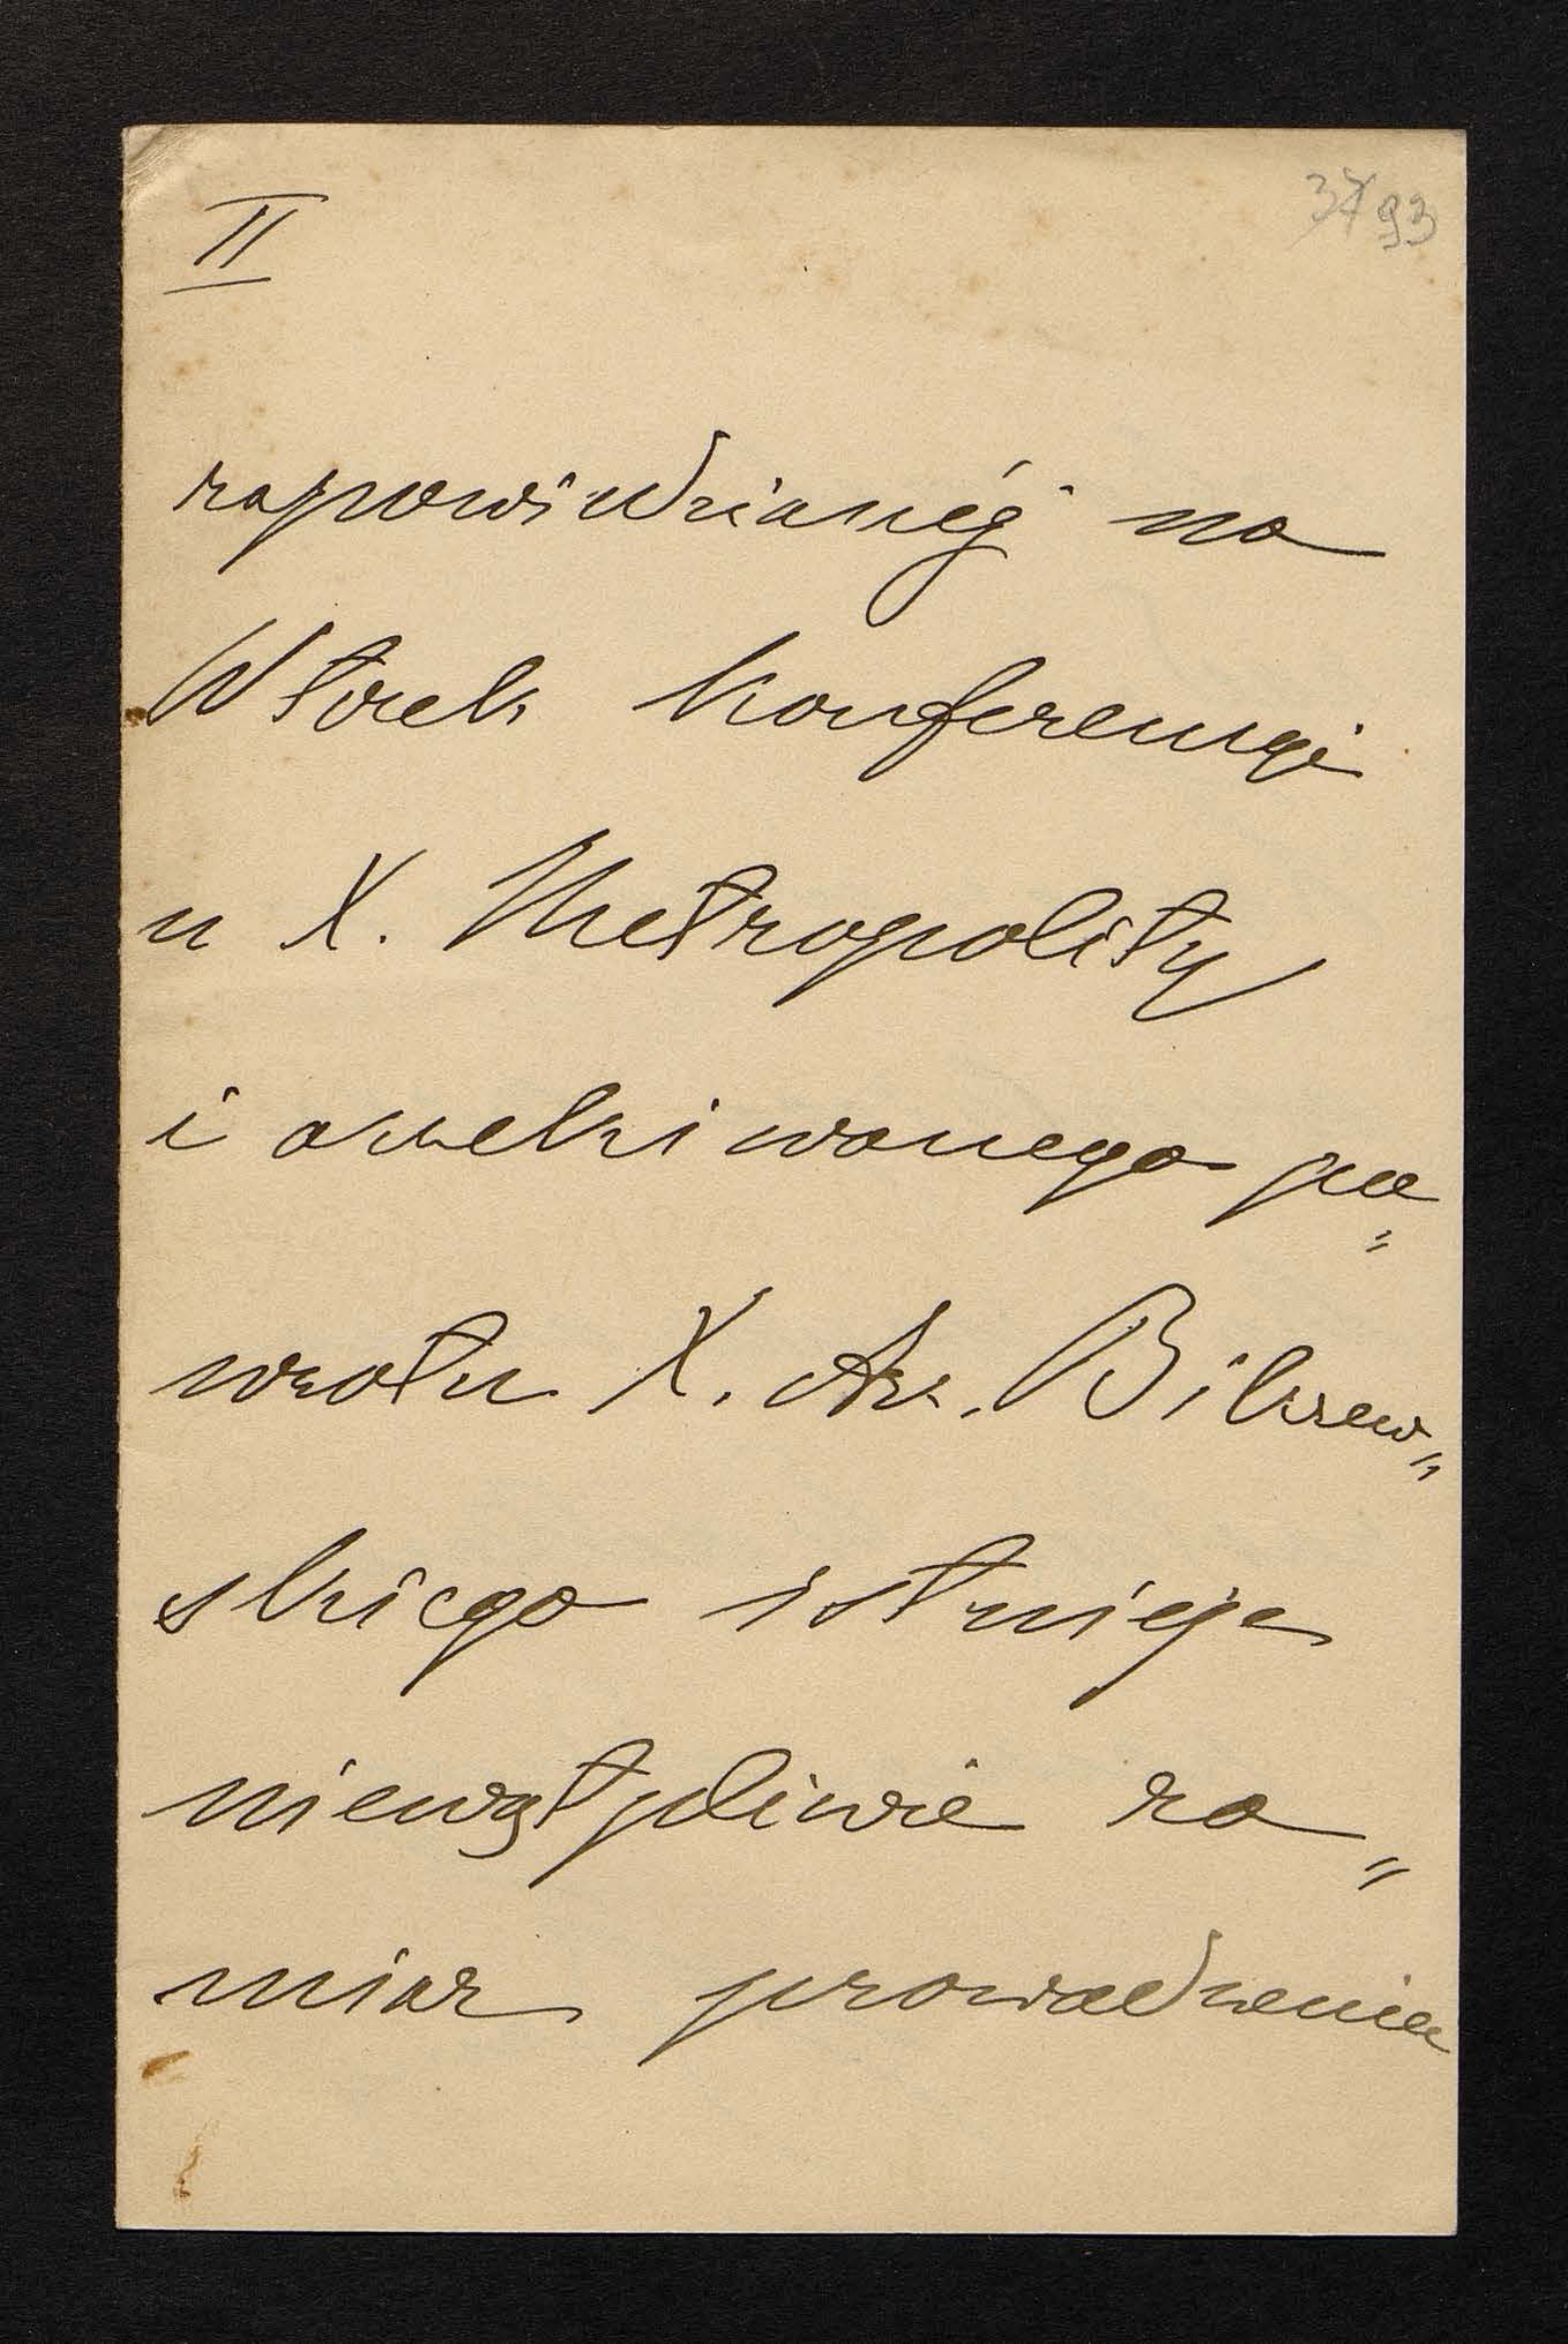 II
37 93
zapowiedzianéj na
Wtorek konferencyi
u X. Metropolity
i oczekiwanego po„
wrotu X. Arc. Bilczew„
skiego istnieje
niewątpliwie za„
miar prowadzenia